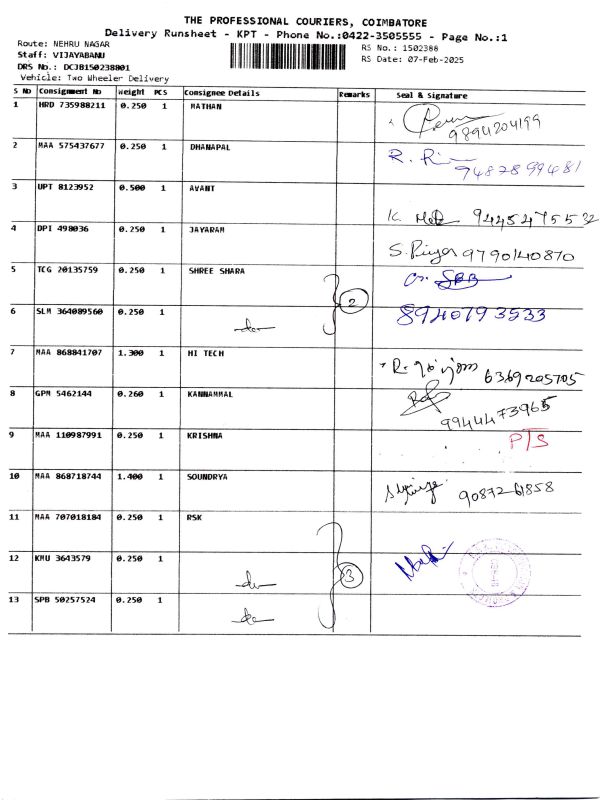 THE PROFESSIONAL COURIERS, COIMBATORE
Delivery Runsheet - KPT - Phone No.:0422-3505555 - Page No.:1
Route: NEHRU NAGAR
Staff: VIJAYABANU
DRS No.: DCJB150238801
Vehicle: Two Wheeler Delivery
RS No.: 1502388
RS Date: 07-Feb-2025
S No Consignment No Weight PCS Consignee Details Remarks Seal & Signature
1 HRD 735988211 0.250 1 MATHAN
9894204199
2 MAA 575437677 0.250 1 DHANAPAL
R.
9482899481
3 UPT 8123952 0.500 1 AVANT
K. 9445475532
4 DPI 498036 0.250 1 JAYARAM
S. Priya 9790140870
5 TCG 20135759 0.250 1 SHREE SHARA
2
6 SLM 364089560 0.250 1
do
8940793533
7 MAA 868841707 1.300 1 HI TECH
R. 6369205705
8 GPM 5462144 0.260 1 KANNAMMAL
9944473965
9 MAA 110987991 0.250 1 KRISHNA
PTS
10 MAA 868718744 1.400 1 SOUNDRYA
9087261858
11 MAA 707018184 0.250 1 RSK
12 KMU 3643579 0.250 1
do
3
13 SPB 50257524 0.250 1
do